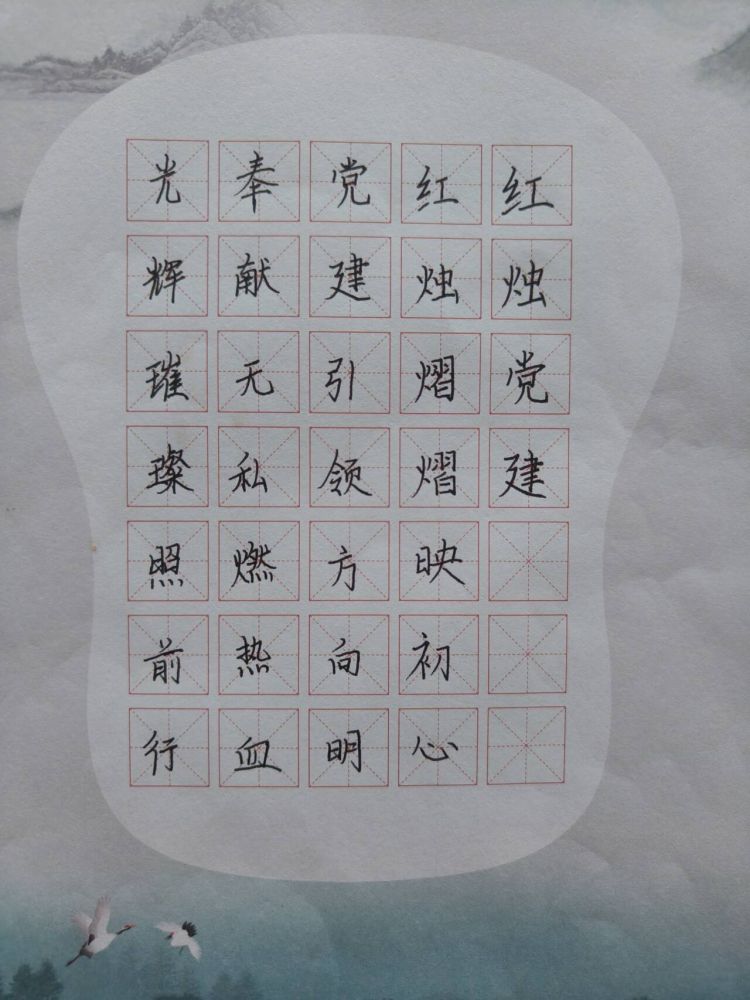 红烛党建
红烛熠熠映初心
党建引领方向明
奉献无私燃热血
光辉璀璨照前行